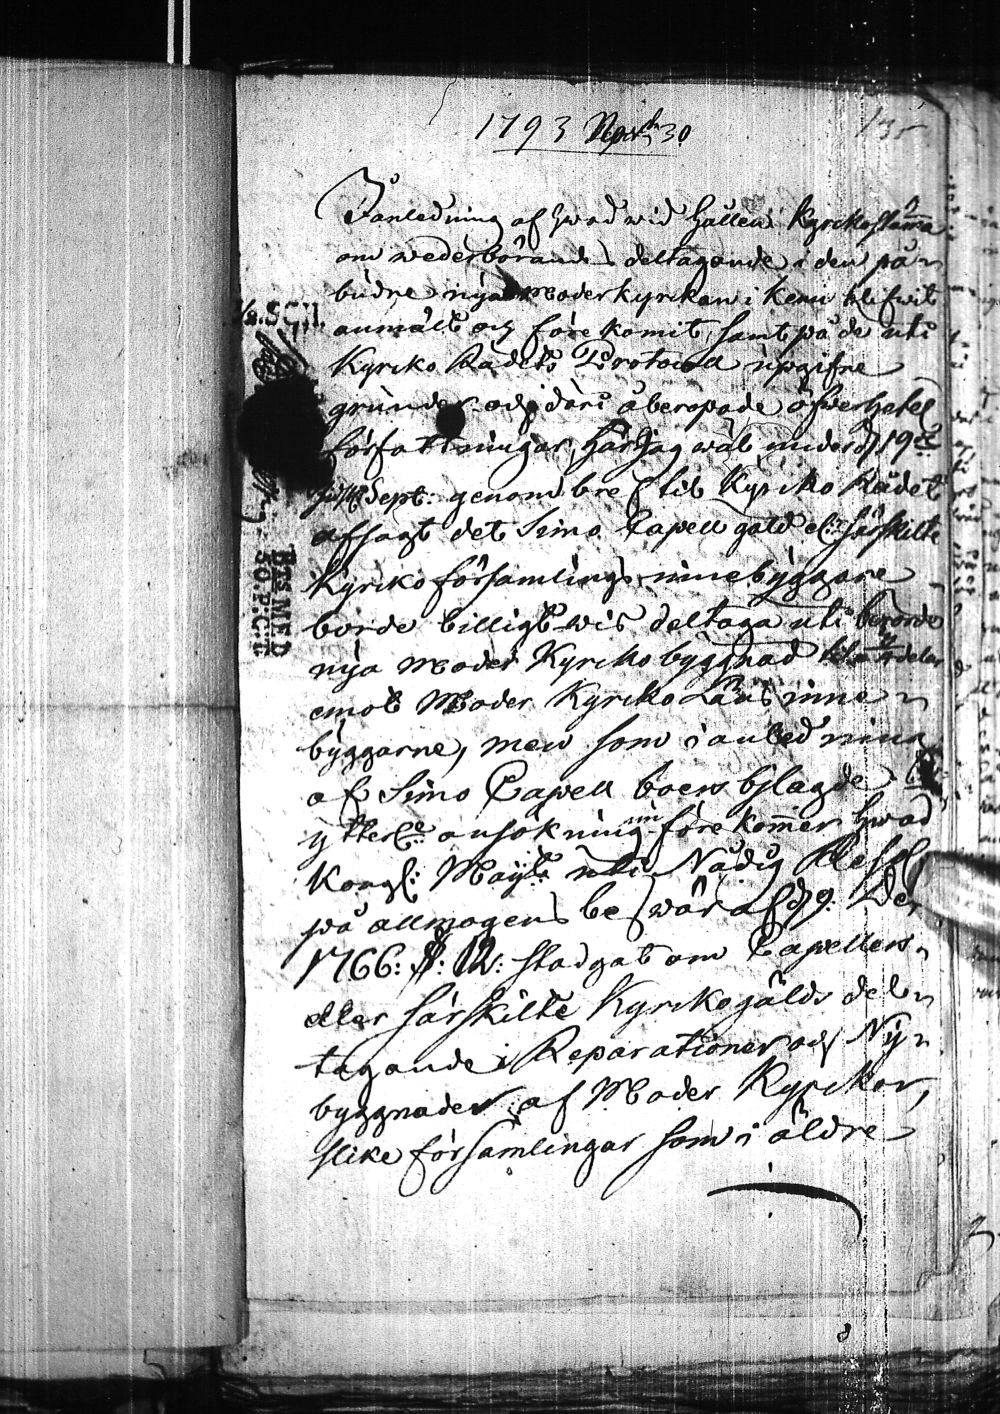 1793 Novb 30
I anledning af hwad wid hållen Kyrkostämma
om wederbörandes deltagande i den på-
budne nya Moderkyrkan i Kemi blifwit
anmält och förekomit, samt på de uti
Kyrko Rådets Protocoll upgifne
grunder och däri åberopade öfwerhetel
författningar, har Jag wäl under d 19de
Sept: genom bref til Kyrko Rådet
afsagt det Simo Capell gäld el: särskilte
Kyrkoförsamlings innebyggare
borde billigt wis deltaga uti berörde
nya Moder Kyrko byggnad
emot Moder Kyrko Läns inne-
byggarne, men som i anledning
af Simo Capell boers bilagde
ytterl:e ansökning förekommer hwad
Kongl: Maij:ts uti Nådig Resol
på allmogens beswär af d 9: Dec
1766: §: 12: stadgat om Capellers-
eller särskilte Kyrkogälds del-
tagande i Reparationer och Ny-
byggnader af Moder Kyrkor,
slike församlingar som i äldre